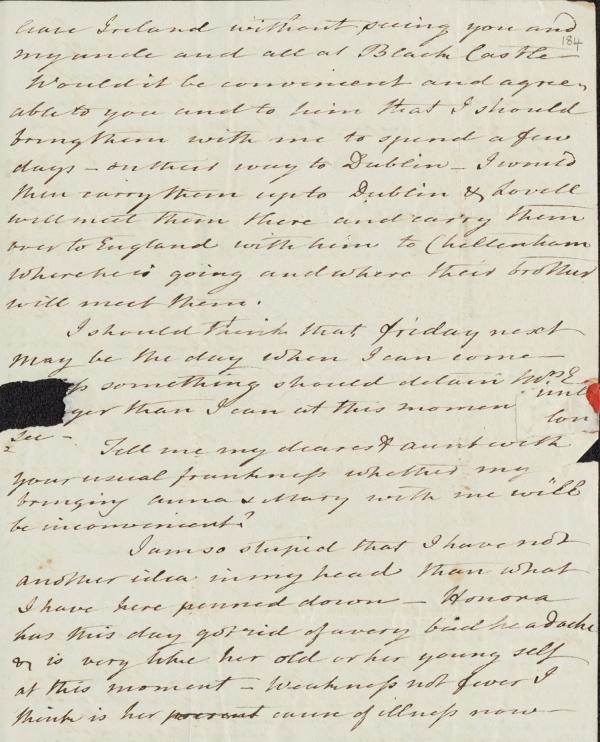 leave Ireland without seeing you and
184
my uncle and all at Black Castle
Would it be convenient and agree,
able to you and to him that I should
bring them with me to spend a few
days – on their way to Dublin – I would
then carry them up to Dublin & Lovell
will meet them there and carry them
over to England with him to Cheltenham
where he is going and where their brother
will meet them.
I should think that friday next
may be the day when I can come –
s something should detain Mrs E
unle
ger than I can at this momen
lon
see –
Tell me my dearest aunt with
your usual frankness whether my
bringing anna & Mary with me will
be inconvenient?
I am so stupid that I have not
another idea in my head than what
I have here penned down – Honora
has this day got rid of a very bad headache
& is very like her old or her young self
at this moment – Weakness not fever I
think is her cause of illness now –